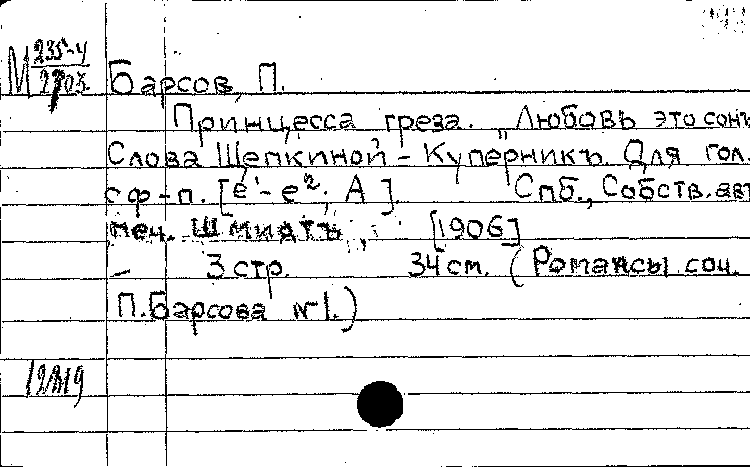 М 235-4
2703
Барсов, П.
Принцесса греза. „Любовь это сонъ
Слова Щепкиной-Куперникъ. Для гол.
с ф-п. [e¹-e², A] Спб., Собств. авт
печ. Шмидтъ, [1906]
- 3 стр. 34 см. (Романсы соч.
П. Барсова №1.)